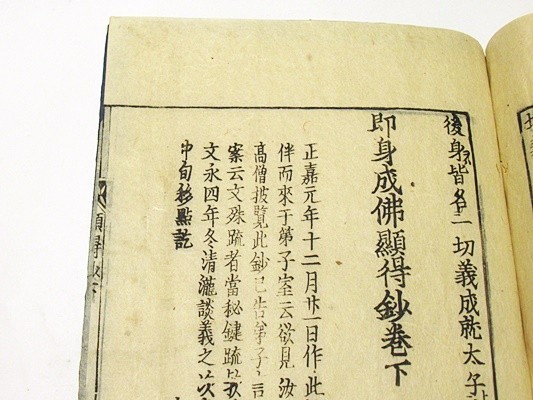 後身皆名一切義成就太
即身成佛顯得鈔卷下
正嘉元年十二月廿一日作此
伴而來于第子室云欲見汝
高僧披覽此鈔已告弟子言
案云文殊疏者當秘鍵疏
文永四年冬清瀧談義之次
中旬移點訖
顯得鈔下